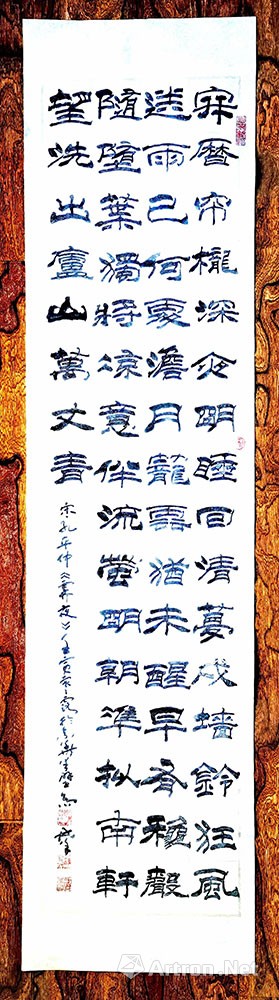 寂曆帘櫳深夜明睡回清夢戍墻鈴狂風
送雨已何處澹月籠雲猶未醒早有穐聲
隨墮葉獨將涼意伴流螢明朝準拟南軒
望洗出廬山萬丈青
宋孔平仲《霽夜》壬寅
Artron.Net